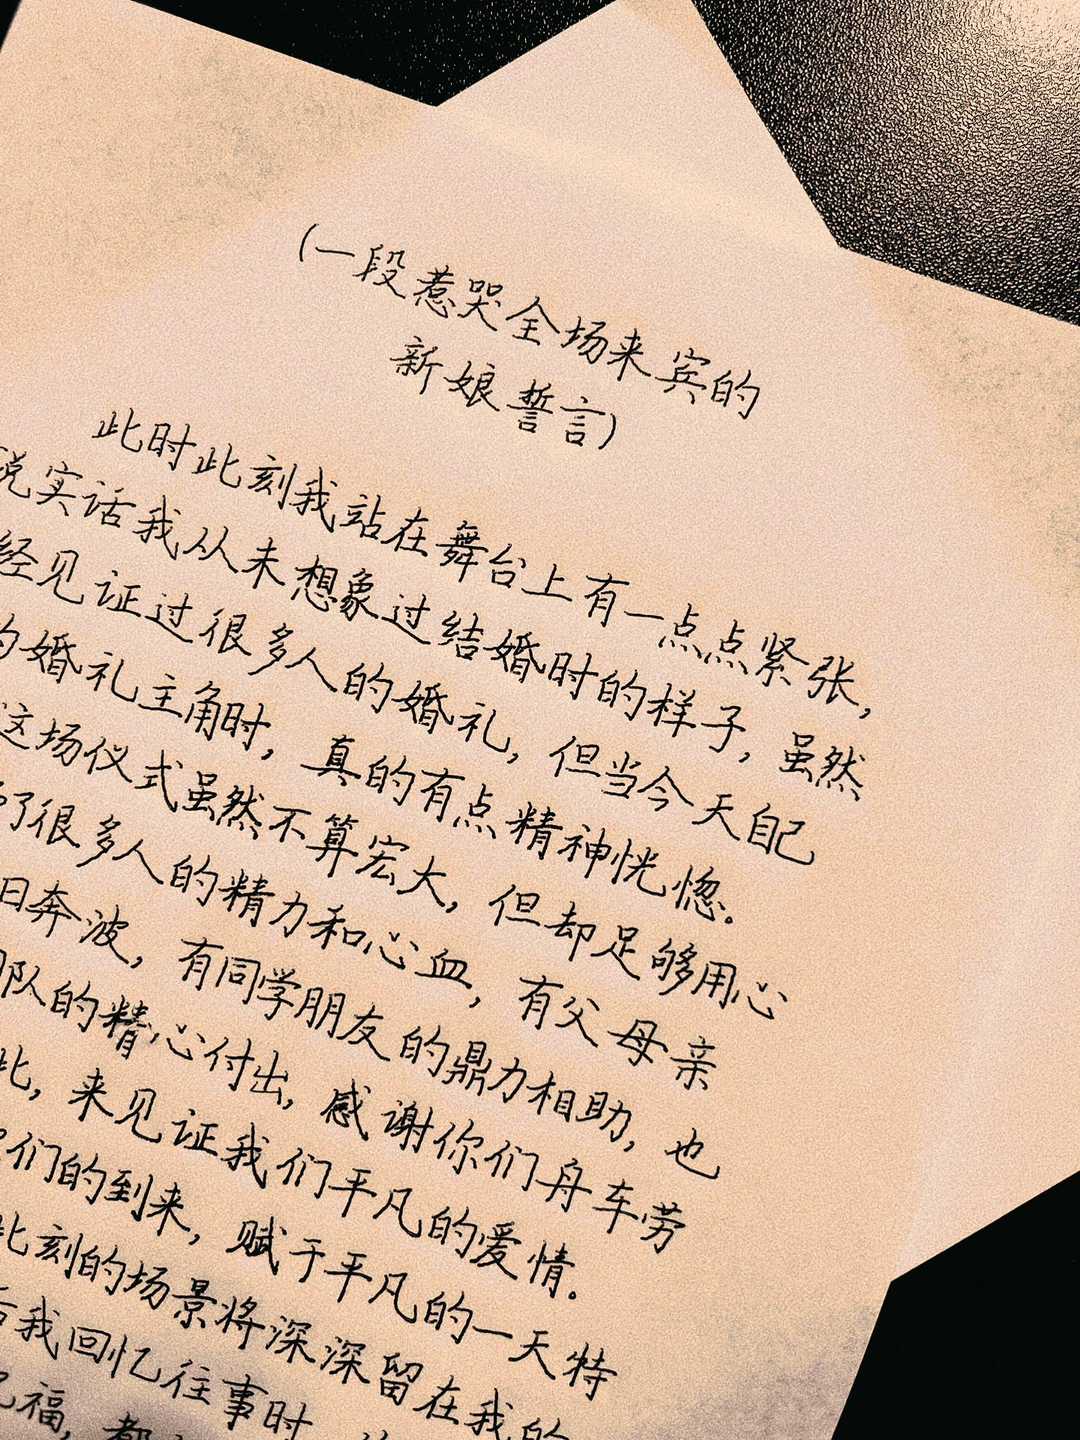 (一段惹哭全场来宾的
新娘誓言)
此时此刻我站在舞台上有一点点紧张,
说实话我从未想象过结婚时的样子,虽然
经见证过很多人的婚礼,但当今天自己
的婚礼主角时,真的有点精神恍惚。
这场仪式虽然不算宏大,但却足够用心
了很多人的精力和心血,有父母亲
日奔波,有同学朋友的鼎力相助,也
队的精心付出,感谢你们舟车劳
此,来见证我们平凡的爱情。
们的到来,赋于平凡的一天特
此刻的场景将深深留在我的
后我回忆往事时
福,都